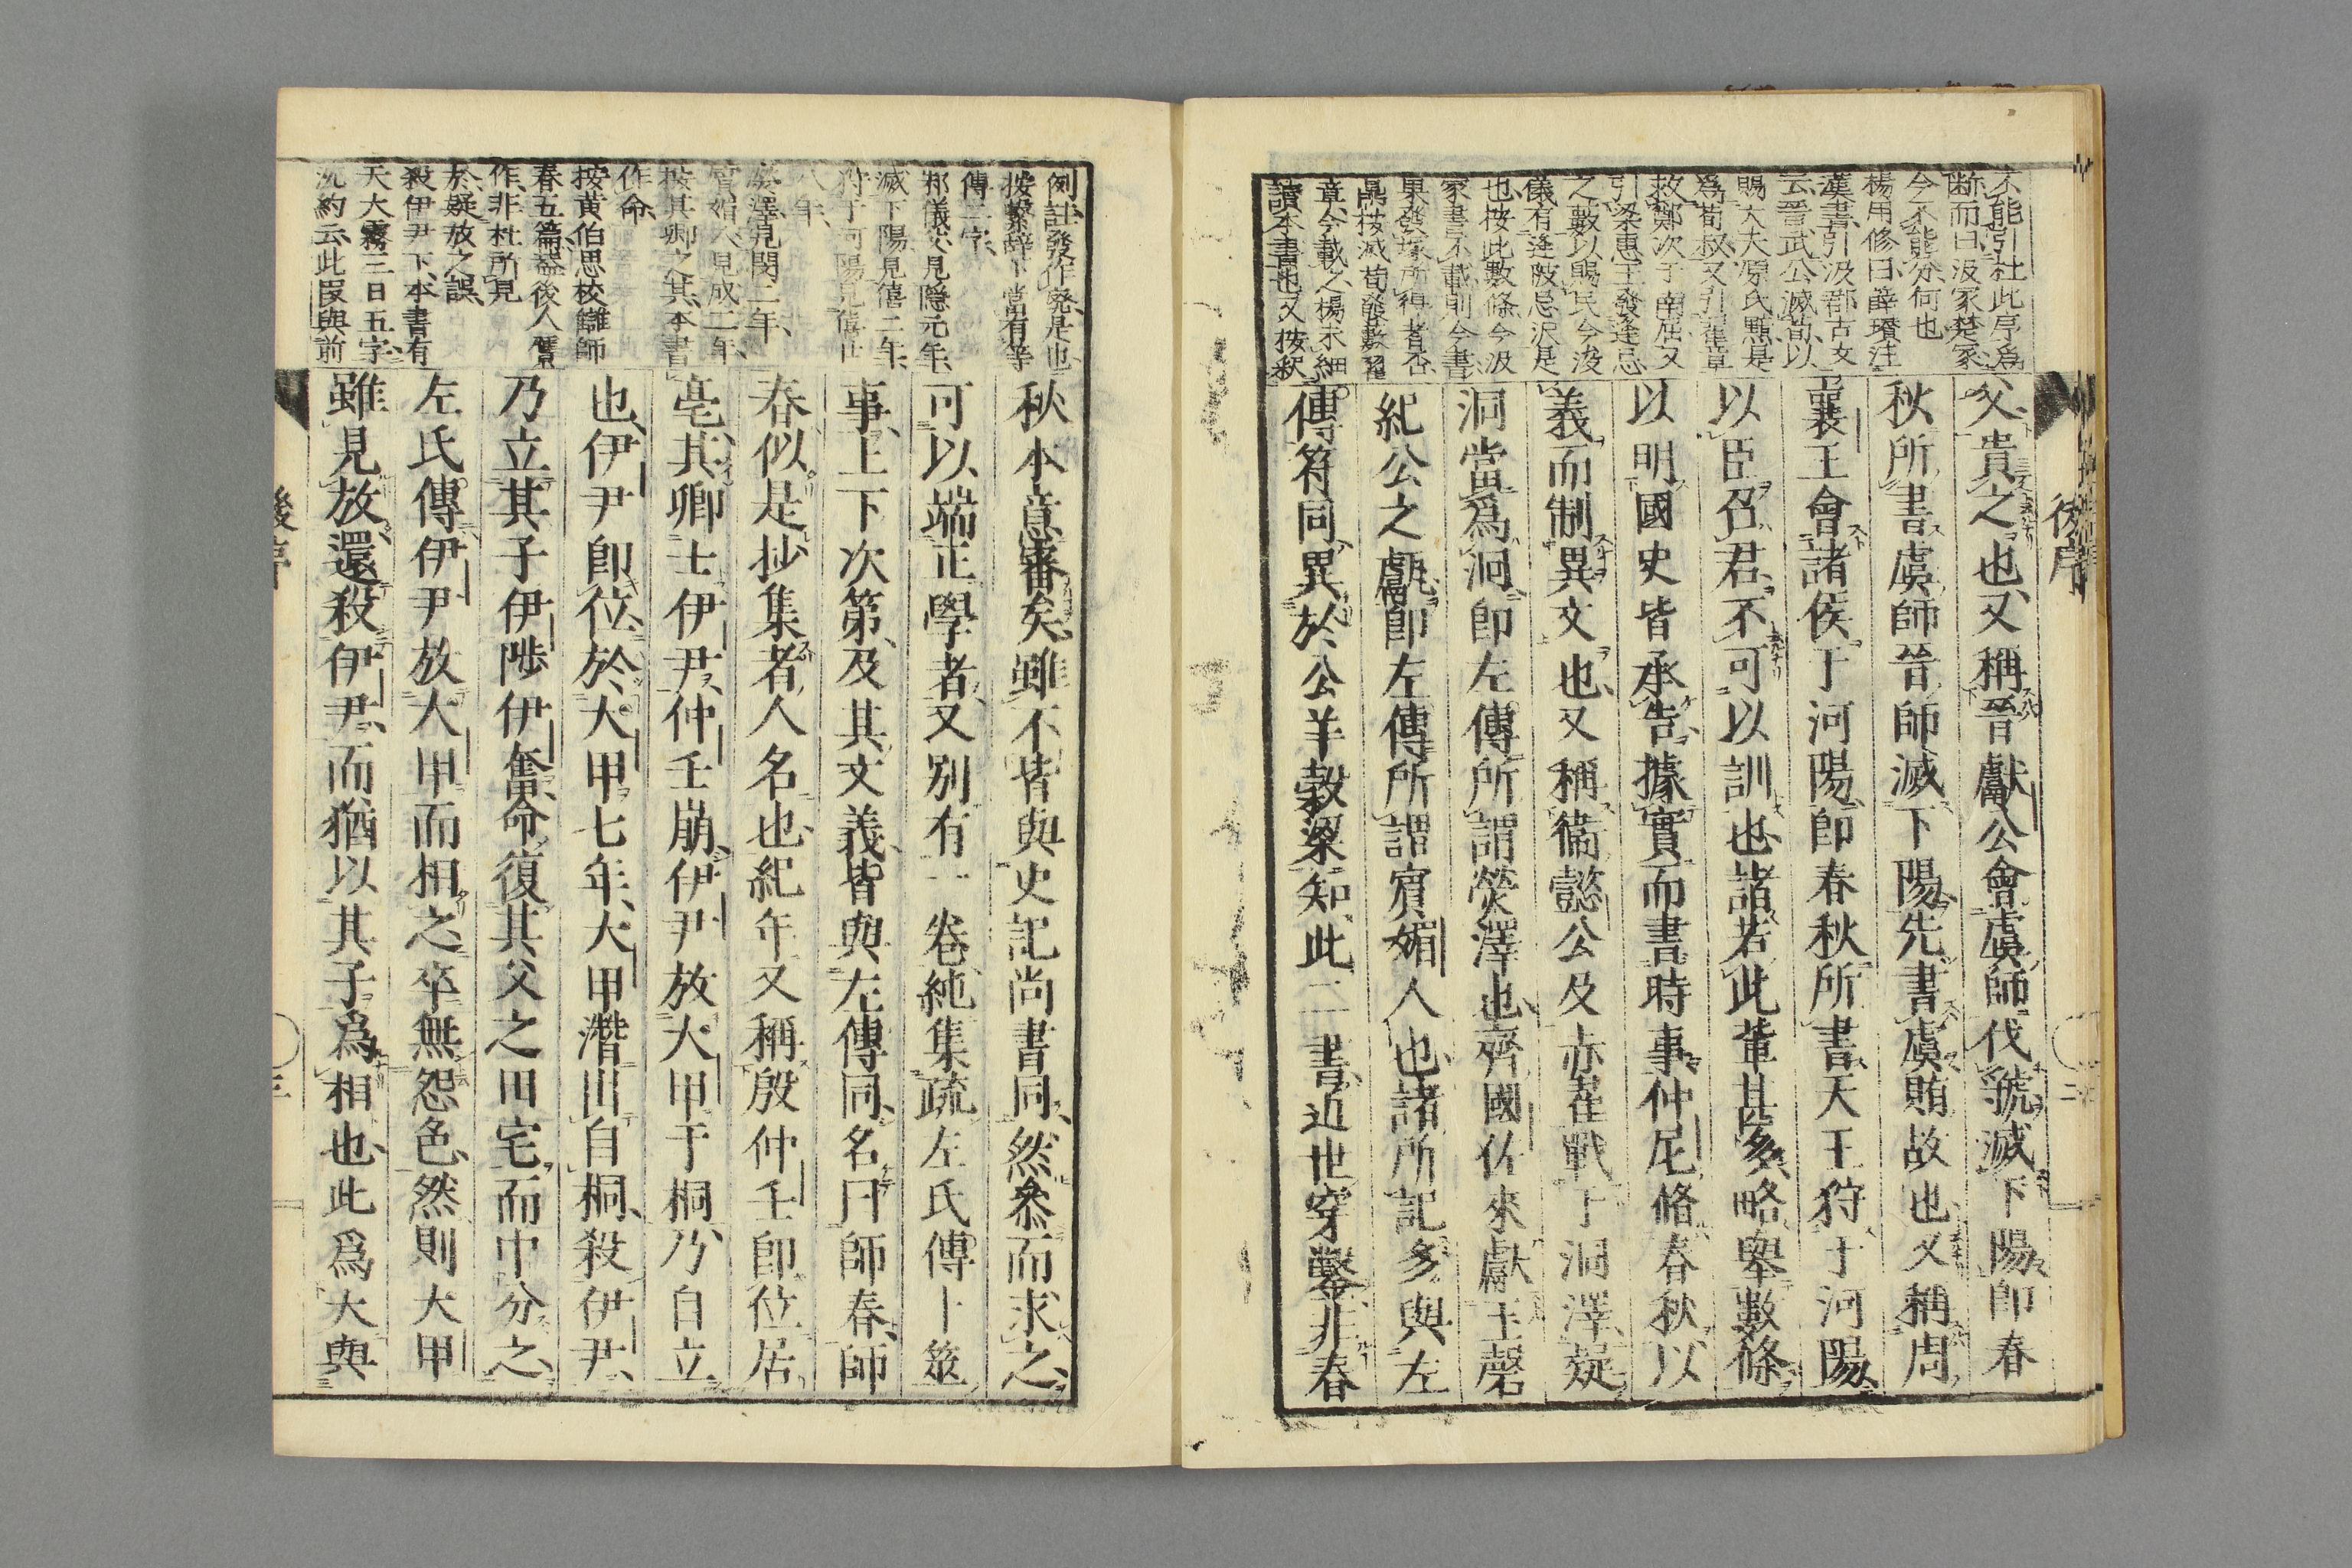 後序
父貴之也又稱晉獻公會虞師伐虢滅下陽即春
秋所書虞師晉師滅下陽先書虞賄故也又稱周
襄王會諸侯于河陽即春秋所書天王狩于河陽
以臣召君不可以訓也諸若此輩甚多略舉數條
以明國史皆承告據實而書時事仲尼脩春秋以
義而制異文也又稱衞懿公及赤翟戰于洞澤疑
洞當爲泂即左傳所謂熒澤也齊國佐來獻玉磬
紀公之甗即左傳所謂賓媚人也諸所記多與左
傳符同異於公羊穀梁知此二書近世穿鑿非春
不能引杜此序爲
断而曰汲冢楚冢
今不能分何也
楊用修曰薛瓚注
漢書引汲郡古文
云晉武公滅荀以
賜大夫原氏黯是
爲荀叔又引翟章
救鄭次于南屈又
引梁惠王發逢忌
之藪以賜民今浚
儀有逢陂忌沢是
也按此數條今汲
冢書不載則今書
果發塚所得者否
章今載之楊未細
讀本書也又按釈
秋本意審矣雖不皆與史記尚書同然參而求之
可以端正學者又別有一卷純集疏左氏傳卜筮
事上下次第及其文義皆與左傳同名曰師春師
春似是抄集者人名也紀年又稱殷仲壬即位居
亳其卿士伊尹仲壬崩伊尹放大甲于桐乃自立
也伊尹即位於大甲七年大甲潛出自桐殺伊尹
乃立其子伊陟伊奮命復其父之田宅而中分之
左氏傳伊尹放大甲而相之卒無怨色然則大甲
雖見放還殺伊尹而猶以其子爲相也此爲大與
例註發作発是也
按繫辭下當有等
傳二字
邾儀父見隱元年
滅下陽見僖二年
狩于河陽見僖廿
八年
熒澤見閔二年
賓媚人見成二年
按其卿之其本書
作命
按黃伯思校讎師
春五篇益後人贋
作非杜所見
於疑放之誤
殺伊尹下本書有
天大霧三日五字
沈約云此叚與前
後序
三